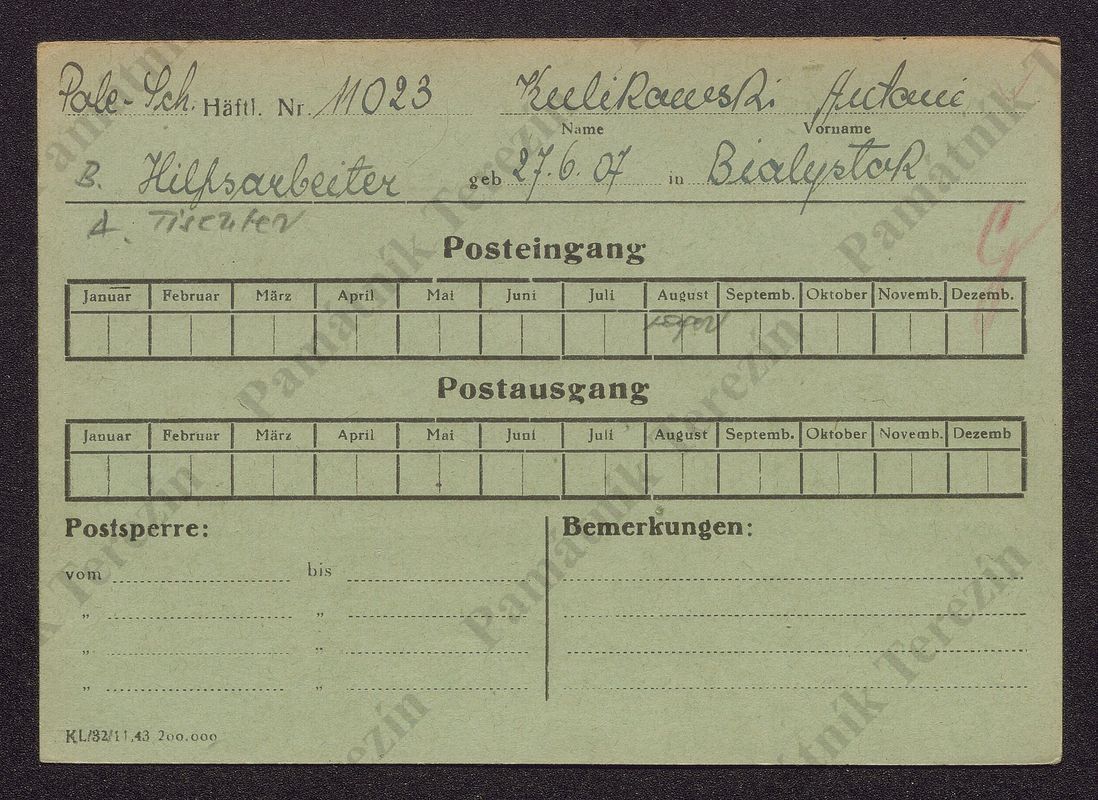 Pole-Sch. Häftl. Nr. 11023 Kulikowski Antoni
Name Vorname
B. Hilfsarbeiter geb 27.6.07 in Bialystok
A. Tischler
Posteingang
Januar Februar März April Mai Juni Juli August Septemb. Oktober Novemb. Dezemb.
Postausgang
Januar Februar März April Mai Juni Juli August Septemb. Oktober Novemb. Dezemb
Postsperre: Bemerkungen:
vom bis
" "
" "
" "
KL/32/11.43 200.000
Památník Terezín